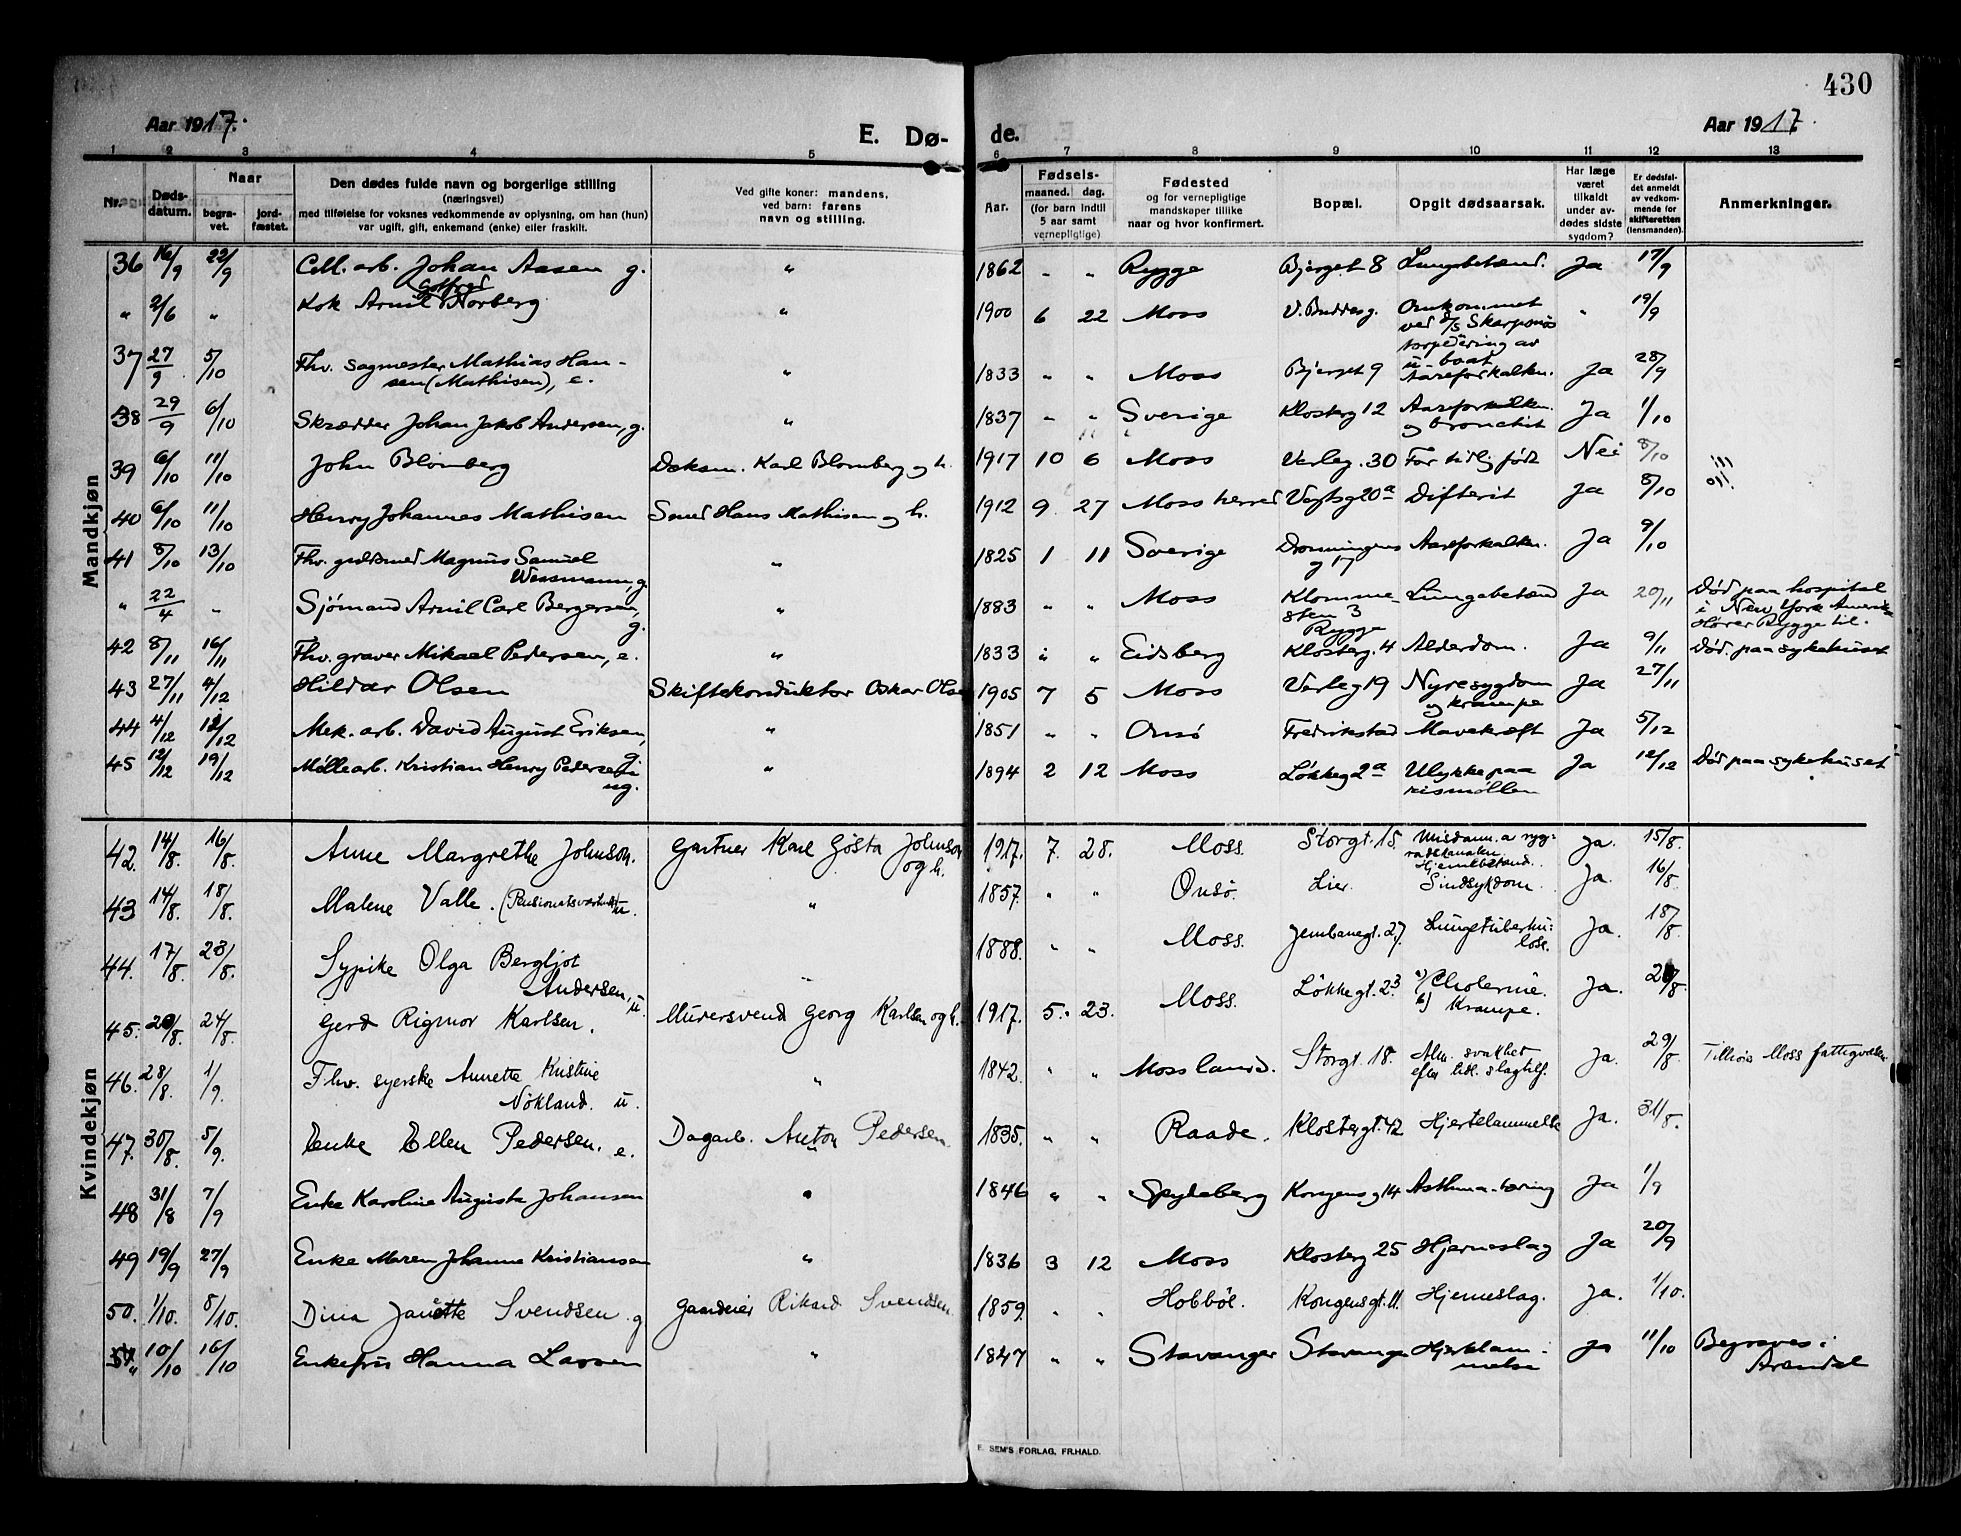 430
Aar 1917.
E. Dø-
de.
Aar 1917.
1 2 3 4 5 6 7 8 9 10 11 12 13
Nr.
Døds-
datum.
Naar
begra-
vet.
jord-
fæstet.
Den dødes fulde navn og borgerlige stilling
(næringsvei)
med tilføielse for voksnes vedkommende av oplysning, om han (hun)
var ugift, gift, enkemand (enke) eller fraskilt.
Ved gifte koner: mandens,
ved barn: farens
navn og stilling.
Aar.
Fødsels-
maaned. dag.
(for barn indtil
5 aar samt
vernepligtige)
Fødested
og for vernepligtige
mandskaper tillike
naar og hvor konfirmert.
Bopæl.
Opgit dødsaarsak.
Har læge
været
tilkaldt
under av-
dødes sidste
sygdom?
Er dødsfal-
det anmeldt
av vedkom-
mende for
skifteretten
(lensmanden).
Anmerkninger.
Mandkjøn
36 16/9 22/9 Cell. arb. Johan Aasen g. " 1862 " " Rygge Bjerget 8 Lungebetænd. Ja 17/9
Gotfred
" 2/6 " Kok Arnil Norberg " 1900 6 22 Moss V. Buddes g. Omkommet " 19/9
ved d/s Skarpsnøs
torpedering av
u-baat
37 27/9 5/10 Fhv. sagmester Mathias Han-
sen (Mathisen), e. " 1833 " " Moss Bjerget 9 Aareforkalkn. Ja 28/9
38 29/9 6/10 Skrædder Johan Jakob Andersen, g. " 1837 " " Sverige Klosterg 12 Aareforkalkn. Ja 1/10
og bronchit
39 6/10 11/10 John Blomberg Døksm. Karl Blomberg og h. 1917 10 6 Moss Verleg. 30 For tidlig født Nei 8/10 11/10
40 6/10 11/10 Henry Johannes Mathisen Smed Hans Mathisen og h. 1912 9 27 Moss herred Vogtsg 20a Difterit Ja 8/10
41 8/10 13/10 Fhv. guldsmed Magnus Samuel
Wessmann, g. " 1825 1 11 Sverige Dronningens Aareforkalkn. Ja 9/10
g 17
" 22/4 " Sjømand Arnil Carl Bergersen,
g. " 1883 " " Moss Klomme- Lungebetænd Ja 20/11 Død paa hospital
sten 3 i New York Amerika
Rygge Hører Rygge til.
42 8/11 16/11 Fhv. graver Mikael Pedersen, e. " 1833 " " Eidsberg Klosterg. 4 Alderdom. Ja 9/11 Død. paa sykehuset
43 27/11 4/12 Hildar Olsen Skiftekonduktør Oskar Olsen 1905 7 5 Moss Verleg 19 Nyresygdom Ja 27/11
og krampe
44 4/12 12/12 Mek. arb. David August Eriksen,
g. " 1851 " " Onsø Fredrikstad Mavekræft Ja 5/12
45 12/12 19/12 Møllearb. Kristian Henry Pedersen
ug. " 1894 2 12 Moss Løkkeg 2a Ulykke paa Ja 12/12 Død paa sykehuset
rismøllen
Kvindekjøn
42. 14/8. 16/8. Anne Margrethe Johnson. Gartner Karl Gøsta Johnson
og h. 1917. 7. 28. Moss. Storgt. 15. Misdann. a rygg- Ja. 15/8.
radskanalen
Hjernebetænd.
43 14/8. 18/8. Malene Valle. (Pensionatsværtinde) u. " 1857. " " Onsø. Lier. Sindsykdom. Ja. 16/8.
44. 17/8. 23/8. Sypike Olga Bergljot
Andersen, u. " 1888. " " Moss. Jernbanegt. 27. Lungetuberku- Ja. 18/8.
lose.
45. 20/8. 24/8. Gerd Rigmor Karlsen. Murersvend Georg Karlsen og h. 1917. 5. 23. Moss. Løkkegt. 23. a) Cholerine. Ja. 21/8.
b) Krampe.
46. 28/8. 1/9. Fhv. syerske Annette Kristine
Nøkland. u. " 1842. " " Moss landd. Storgt. 18. Alm. svakhet Ja. 29/8. Tilhøis Moss fattigvæsen
efter lidl. slagtilf.
47. 30/8. 5/9. Enke Ellen Pedersen. e. Dagarb. Anton Pedersen. 1835. " " Raade. Klostergt. 42 Hjertelammelse Ja. 31/8.
48 31/8 7/9 Enke Karoline Augusta Johansen " 1846 " " Spydeberg Kongensg 14 Asthma-tæring Ja 1/9
49 19/9 27/9 Enke Maren Johanne Kristiansen " 1836 3 12 Moss Klosterg 25 Hjerneslag Ja 20/9
50. 1/10. 8/10. Dina Janette Svendsen g Gaardeier Rikard Svendsen. 1859. " " Hobbøl. Kongensgt. 11. Hjerneslag. Ja. 1/10.
" 10/10 16/10 Enkefru Hanna Larsen " 1847 " " Stavanger Stavanger Hjertelam- Ja 11/10 Begraves i
melse Arendal
E. SEM'S FORLAG, FR.HALD.